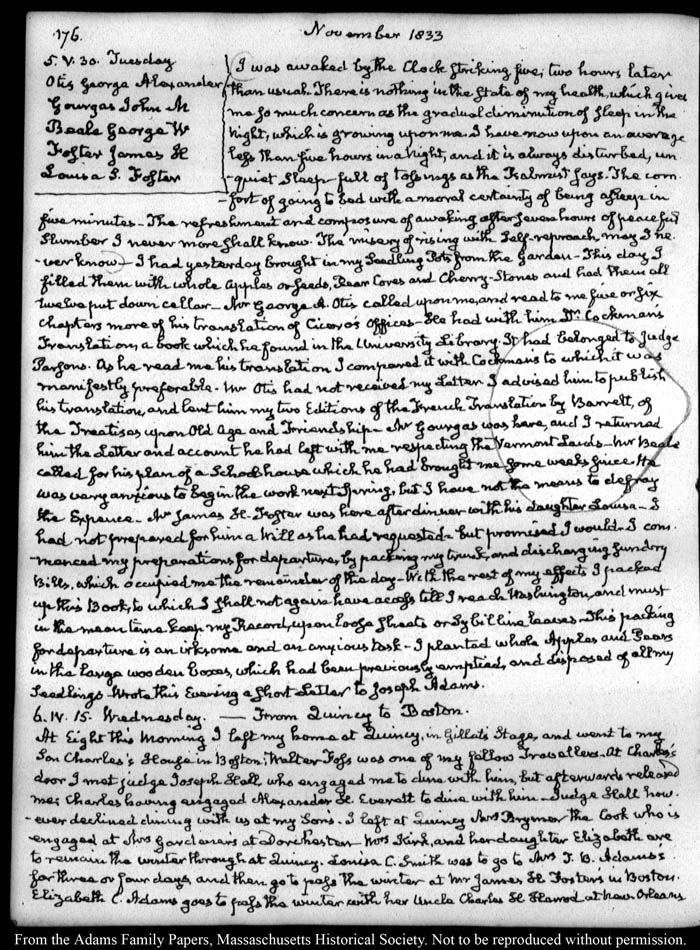 176.
November 1833
5. V. 30. Tuesday
Otis George Alexander
Gourgas John M
Beale George W
Foster James H
Louisa S. Foster
I was awaked by the Clock striking five; two hours later
than usual. There is nothing in the state of my health, which gives
me so much concern as the gradual diminution of sleep in the
night, which is growing upon me. I have now upon an average
less than five hours in a night, and it is always disturbed, un
-quiet sleep—full of tossings as the Psalmist says. The com
-fort of going to bed with a moral certainty of being asleep in
five minutes—The refreshment and composure of awaking after seven hours of peaceful
slumber I never more shall know. The misery of rising with self-reproach, may I ne
-ver know—I had yesterday brought in my Seedling Pots from the Garden—This day, I
filled them with whole Apples or seeds, Pear Cores and Cherry-Stones and had them all
twelve put down cellar—Mr George A. Otis called upon me, and read to me five or six
chapters more of his translation of Cicero's Offices—He had with him Dr. Cockman's
Translation, a book which he found in the University Library. It had belonged to Judge
Parsons. As he read me his translation I compared it with Cockman's to which it was
manifestly preferable. Mr Otis had not received my Letter. I advised him to publish
his translation, and lent him my two Editions of the French Translation by Barrett, of
the Treatises upon Old Age and Friendship—Mr Gourgas was here, and I returned
him the Letter and account he had left with me respecting the Vermont Lands—Mr Beale
called for his plan of a School house which he had brought me some weeks since. He
was very anxious to begin the work next Spring, but I have not the means to defray
the Expence—Mr James H. Foster was here after dinner with his daughter Louisa—I
had not prepared for him a Will as he had requested—but promised I would—I com
-menced my preparations for departure, by packing my trunk, and discharging sundry
Bills, which occupied me the remainder of the day—With the rest of my effects I packed
up this Book, to which I shall not again have access till I reach Washington, and must
in the mean time keep my Record, upon loose Sheets or Sybilline leaves—This packing
for departure is an irksome and an anxious task—I planted whole Apples and Pears
in the large wooden boxes, which had been previously emptied, and disposed of all my
Seedlings—Wrote this Evening a short Letter to Joseph Adams.
6. IV. 15. Wednesday. — From Quincy to Boston.
At Eight this Morning I left my home at Quincy, in Gillet's Stage, and went to my
Son Charles's House in Boston; Walter Foss was one of my fellow Travellers—At Charles's
door I met judge Joseph Hall, who engaged me to dine with him, but afterwards released
me; Charles having engaged Alexander H. Everett to dine with him—Judge Hall how
-ever declined dining with us at my Sons—I left at Quincy Mrs Prymer the Cook who is
engaged at Mrs Gardner's at Dorchester—Mrs Kirk, and her daughter Elizabeth are
to remain the winter through at Quincy. Louisa C. Smith was to go to Mrs T. B. Adams's
for three or four days, and then go to pass the winter at Mr James H. Foster's in Boston.
Elizabeth C. Adams goes to pass the winter with her Uncle Charles H. Harrod at New Orleans
From the Adams Family Papers, Massachusetts Historical Society. Not to be reproduced without permission